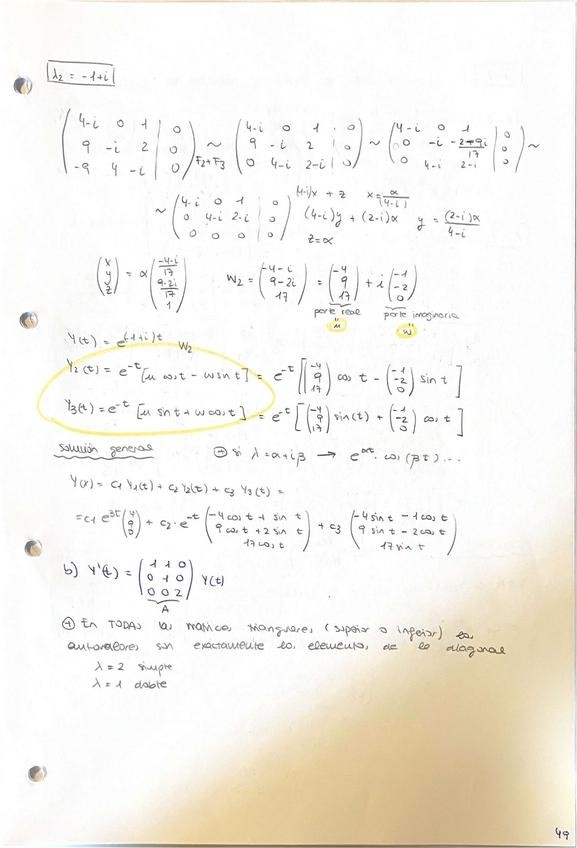 λ₂ = -1+i
( 4-i 0 1 | 0 ) ~ ( 4-i 0 1 | 0 ) ~ ( 4-i 0 1 | 0 ) ~
( 9 -i 2 | 0 ) ( 9 -i 2 | 0 ) ( 0 -i -2+9i/17 | 0 )
( -9 4 -i | 0 ) F2+F3 ( 0 4-i 2-i | 0 ) ( 0 4-i 2-i | 0 )
~ ( 4-i 0 1 | 0 ) (4-i)x + z x = α/(4-i)
( 0 4-i 2-i | 0 ) (4-i)y + (2-i)α y = (2-i)α/4-i
( 0 0 0 | 0 ) z=α
(x y z) = α (-4-i/17 9-2i/17 1) W₂ = (-4-i 9-2i 17) = (-4 9 17) + i (-1 -2 0)
parte real parte imaginaria
u w
Y(t) = e^(-1+i)t W₂
Y₂(t) = e^-t [u cos t - w sin t] = e^-t [(-4 9 17) cos t - (-1 -2 0) sin t]
Y₃(t) = e^-t [u sin t + w cos t] = e^-t [(-4 9 17) sin(t) + (-1 -2 0) cos t]
solución general → si λ = α+iβ → e^αt · cos(βt)...
Y(x) = c₁ Y₁(t) + c₂ Y₂(t) + c₃ Y₃(t) =
= c₁ e^3t (4 9 0) + c₂ · e^-t (-4 cos t + sin t 9 cos t + 2 sin t 17 cos t) + c₃ (-4 sin t - 1 cos t 9 sin t - 2 cos t 17 sin t)
b) Y'(t) = (1 1 0 0 1 0 0 0 2) Y(t)
A
En TODAS las matrices triangulares (superior o inferior) los
autovalores son exactamente los elementos de la diagonal
λ = 2 simple
λ = 1 doble
49